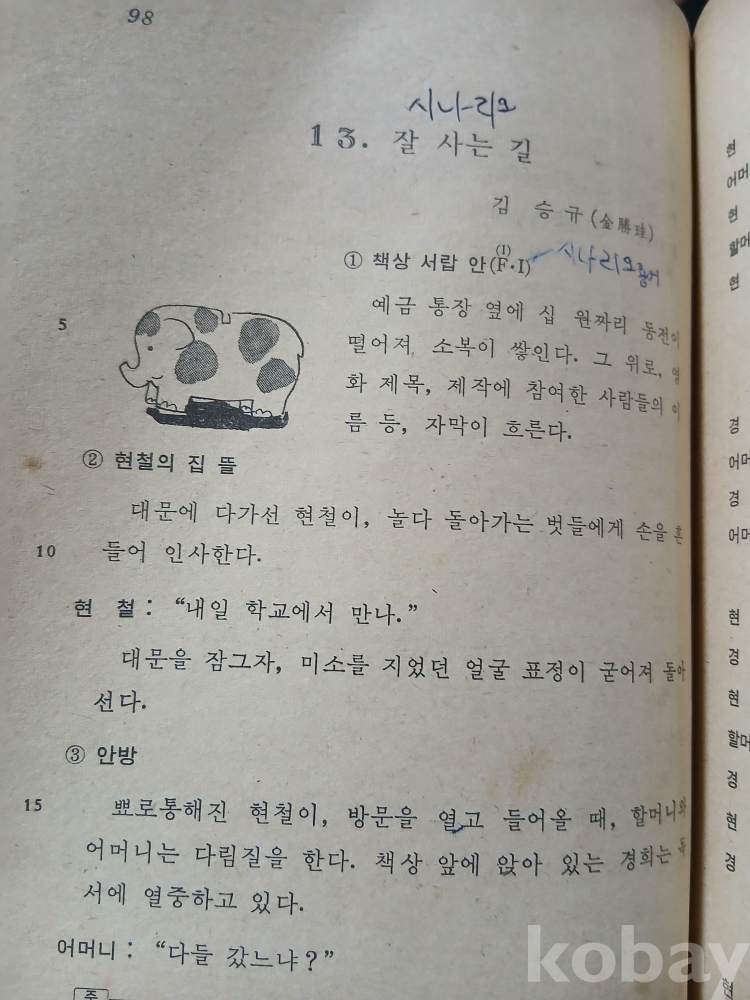 98
시나리오
13. 잘 사는 길
김 승규(金勝珪)
① 책상 서랍 안(F·I)
(1)
시나리오
예금 통장 옆에 십 원짜리 동전이
5
떨어져, 소복이 쌓인다. 그 위로, 영
화 제목, 제작에 참여한 사람들의 이
름 등, 자막이 흐른다.
② 현철의 집 뜰
대문에 다가선 현철이, 놀다 돌아가는 벗들에게 손을 흔
10 들어 인사한다.
현 철 : “내일 학교에서 만나.”
대문을 잠그자, 미소를 지었던 얼굴 표정이 굳어져 돌아
선다.
③ 안방
15 뾰로통해진 현철이, 방문을 열고 들어올 때, 할머니와
어머니는 다림질을 한다. 책상 앞에 앉아 있는 경희는 독
서에 열중하고 있다.
어머니 : “다들 갔느냐?”
주
현
어머
현
할머
현
경
어머
경
어머
현
경
현
할머
경
현
경
현
kobay